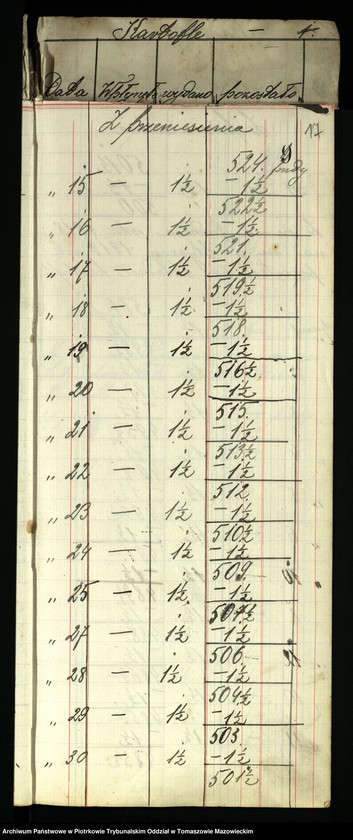 Kartofle — 4.
Data Wpłynęło wydano pozostało
Z przeniesienia 17
524. pudy
„ 15 — 1½ – 1½
522½
„ 16 — 1½ – 1½
521.
„ 17 — 1½ – 1½
519½
„ 18 — 1½ – 1½
518.
„ 19 — 1½ – 1½
516½
„ 20 — 1½ – 1½
515.
„ 21 — 1½ – 1½
513½
„ 22 — 1½ – 1½
512.
„ 23 — 1½ – 1½
510½
„ 24 — 1½ – 1½
509.
„ 25 — 1½ – 1½
507½
„ 27 — 1½ – 1½
506.
„ 28 — 1½ – 1½
504½
„ 29 — 1½ – 1½
503.
„ 30 — 1½ – 1½
501½
Archiwum Państwowe w Piotrkowie Trybunalskim Oddział w Tomaszowie Mazowieckim